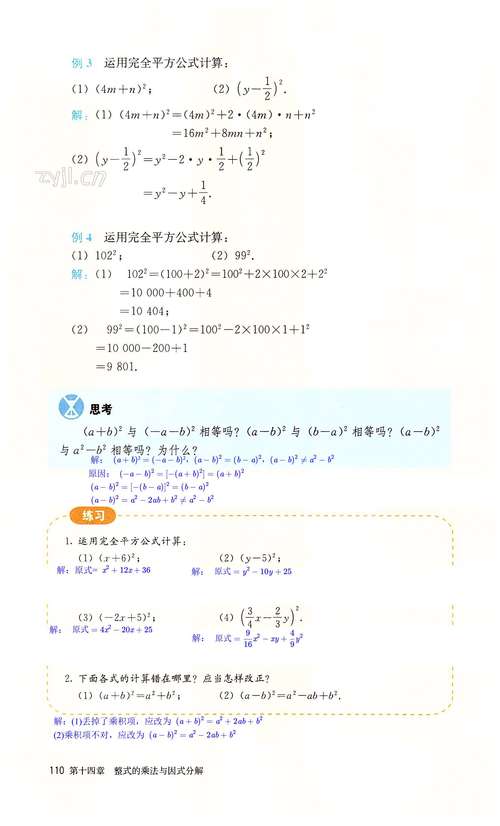 例 3 运用完全平方公式计算：
(1) (4m+n)²； (2) (y−1/2)².
解：(1) (4m+n)²=(4m)²+2·(4m)·n+n²
=16m²+8mn+n²；
(2) (y−1/2)²=y²−2·y·1/2+(1/2)²
zyjl.cn
=y²−y+1/4.
例 4 运用完全平方公式计算：
(1) 102²； (2) 99².
解：(1) 102²=(100+2)²=100²+2×100×2+2²
=10 000+400+4
=10 404；
(2) 99²=(100−1)²=100²−2×100×1+1²
=10 000−200+1
=9 801.
思考
(a+b)² 与 (−a−b)² 相等吗？(a−b)² 与 (b−a)² 相等吗？(a−b)²
与 a²−b² 相等吗？为什么？
解： (a+b)²=(−a−b)²，(a−b)²=(b−a)²，(a−b)²≠a²−b²
原因： (−a−b)²=[−(a+b)²]=(a+b)²
(a−b)²=[−(b−a)]²=(b−a)²
(a−b)²=a²−2ab+b²≠a²−b²
练习
1. 运用完全平方公式计算：
(1) (x+6)²； (2) (y−5)²；
解：原式= x²+12x+36 解： 原式=y²−10y+25
(3) (−2x+5)²； (4) (3/4x−2/3y)².
解： 原式=4x²−20x+25
解： 原式=9/16x²−xy+4/9y²
2. 下面各式的计算错在哪里？应当怎样改正？
(1) (a+b)²=a²+b²； (2) (a−b)²=a²−ab+b².
解：(1)丢掉了乘积项，应改为 (a+b)²=a²+2ab+b²
(2)乘积项不对，应改为 (a−b)²=a²−2ab+b²
110 第十四章 整式的乘法与因式分解